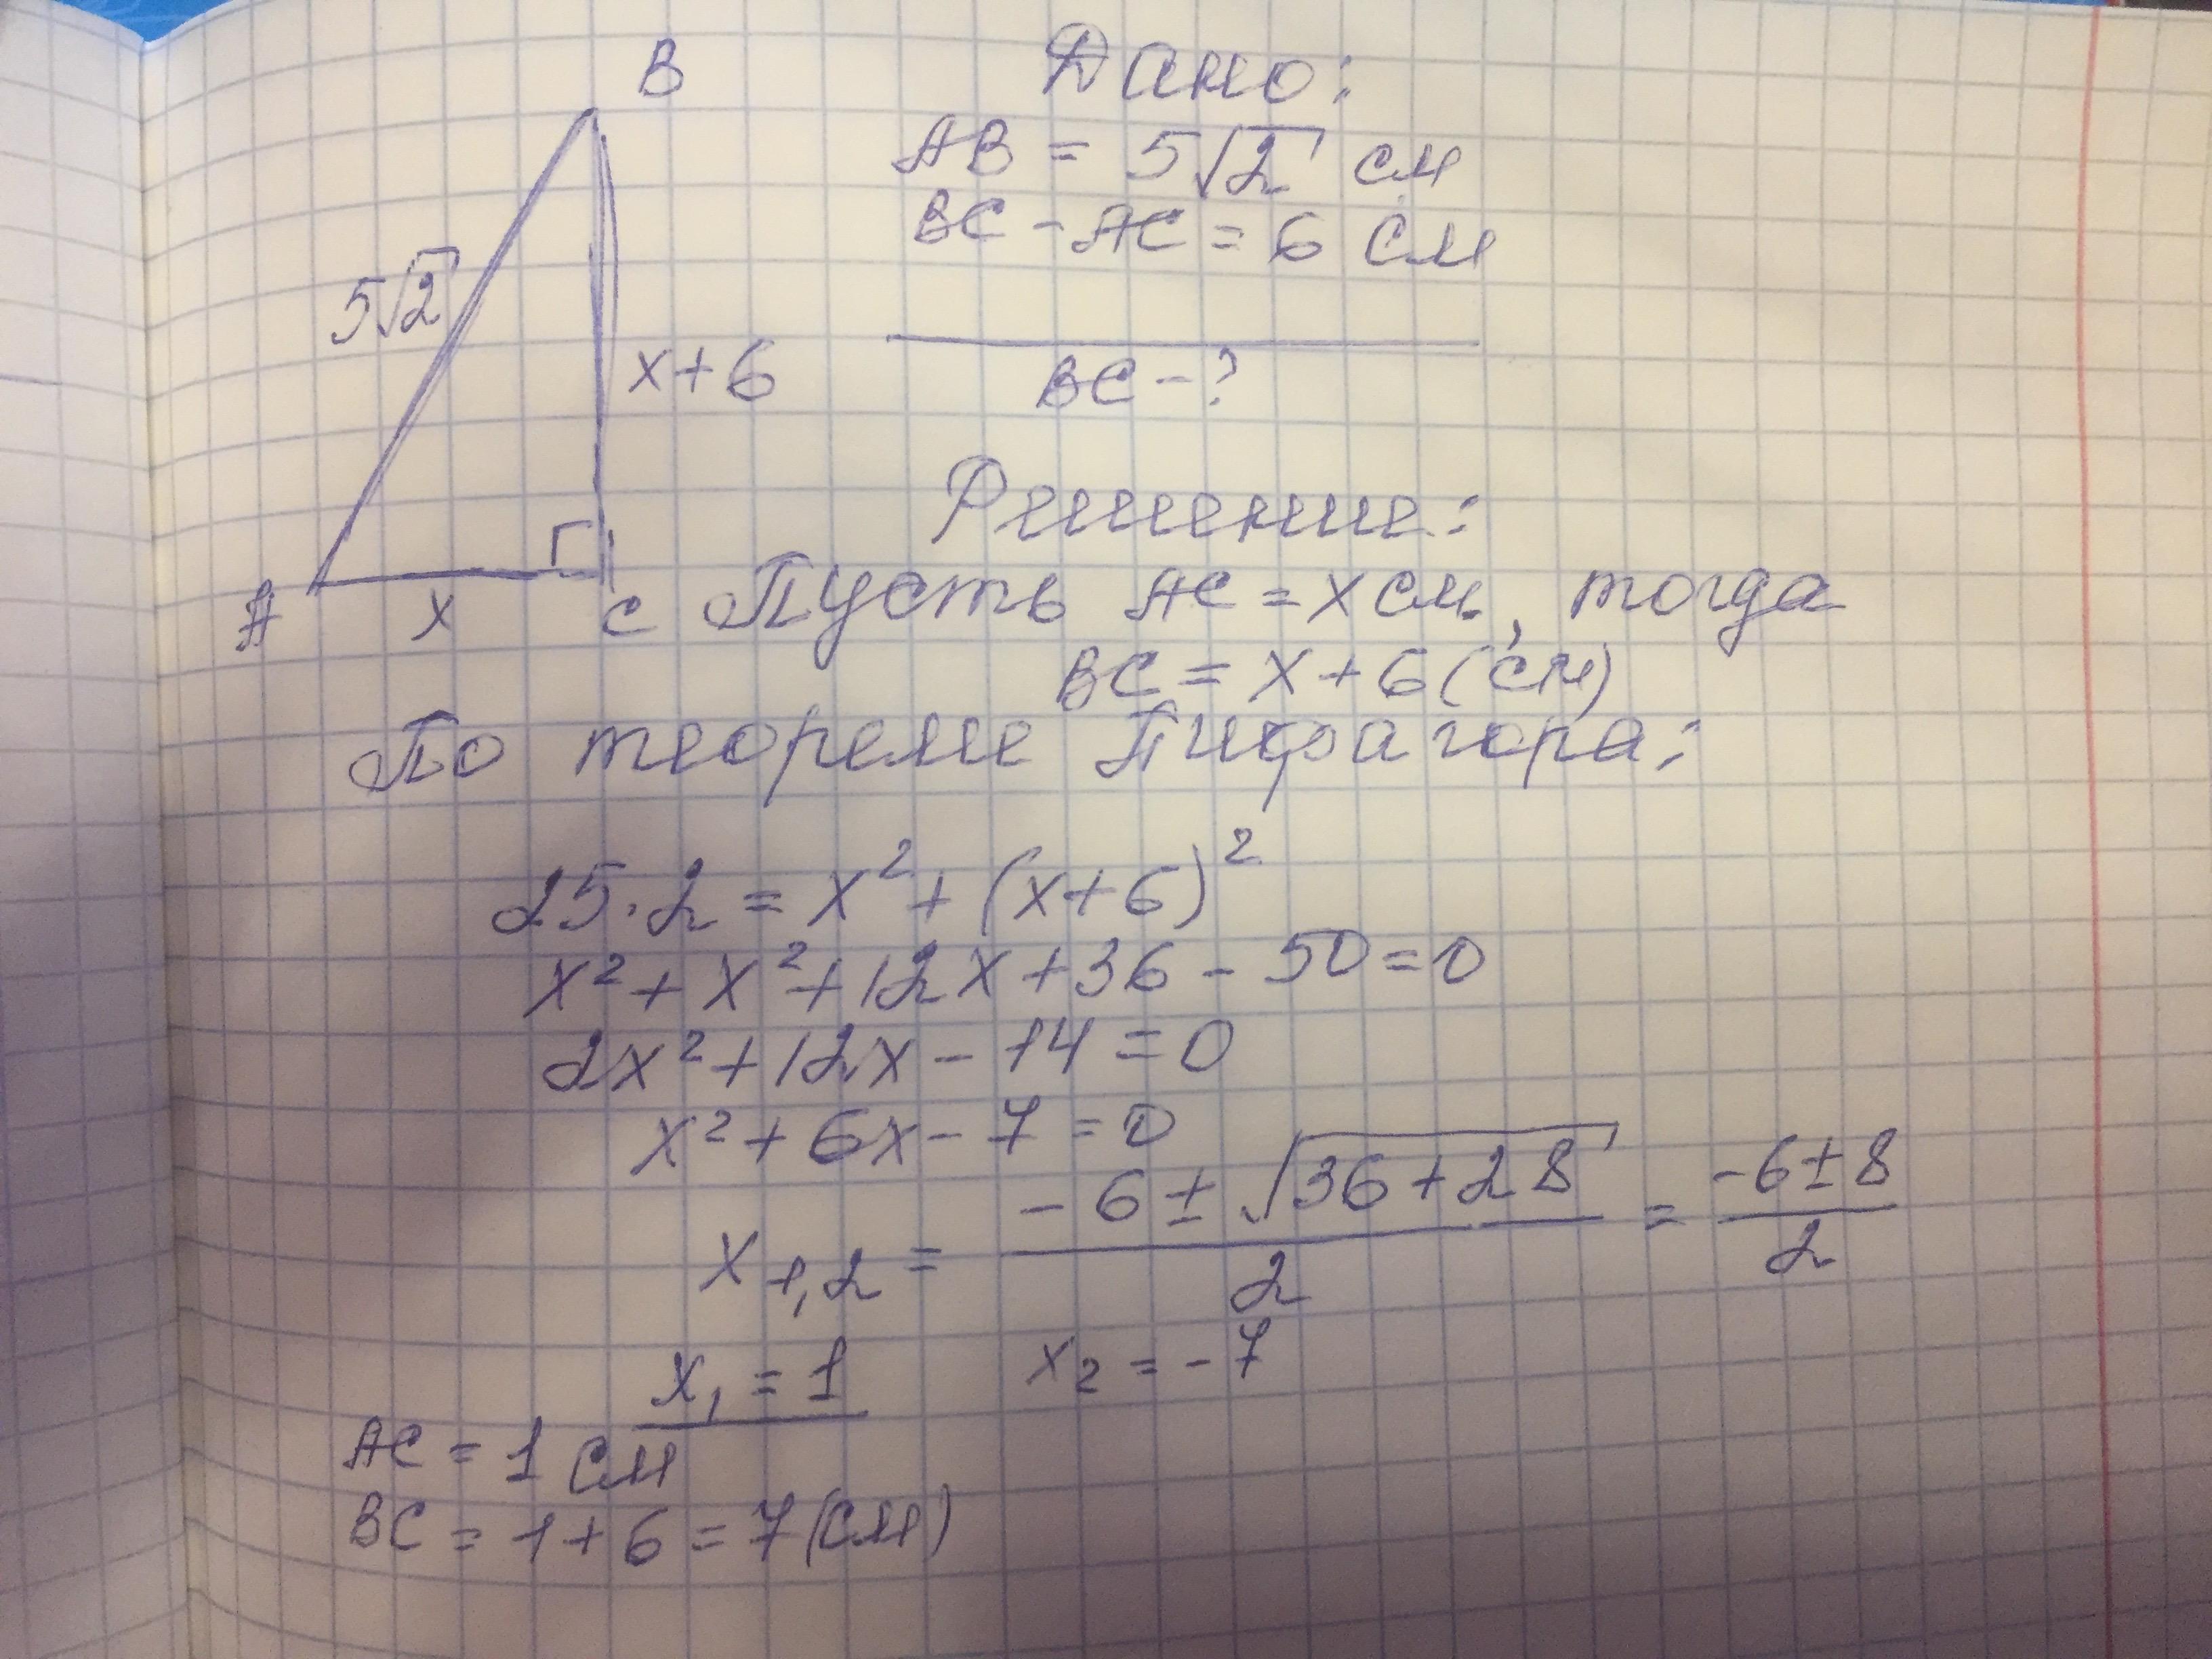 B
Дано:
AB = 5√2 см
BC - AC = 6 см
5√2
x+6
BC - ?
Решение:
A
x
C
Пусть AC = x см, тогда
BC = x + 6 (см)
По теореме Пифагора:
25·2 = x² + (x+6)²
x² + x² + 12x + 36 - 50 = 0
2x² + 12x - 14 = 0
x² + 6x - 7 = 0
x₁,₂ = (-6 ± √(36+28))/2 = (-6 ± 8)/2
x₁ = 1 x₂ = -7
AC = 1 см
BC = 1 + 6 = 7 (см)